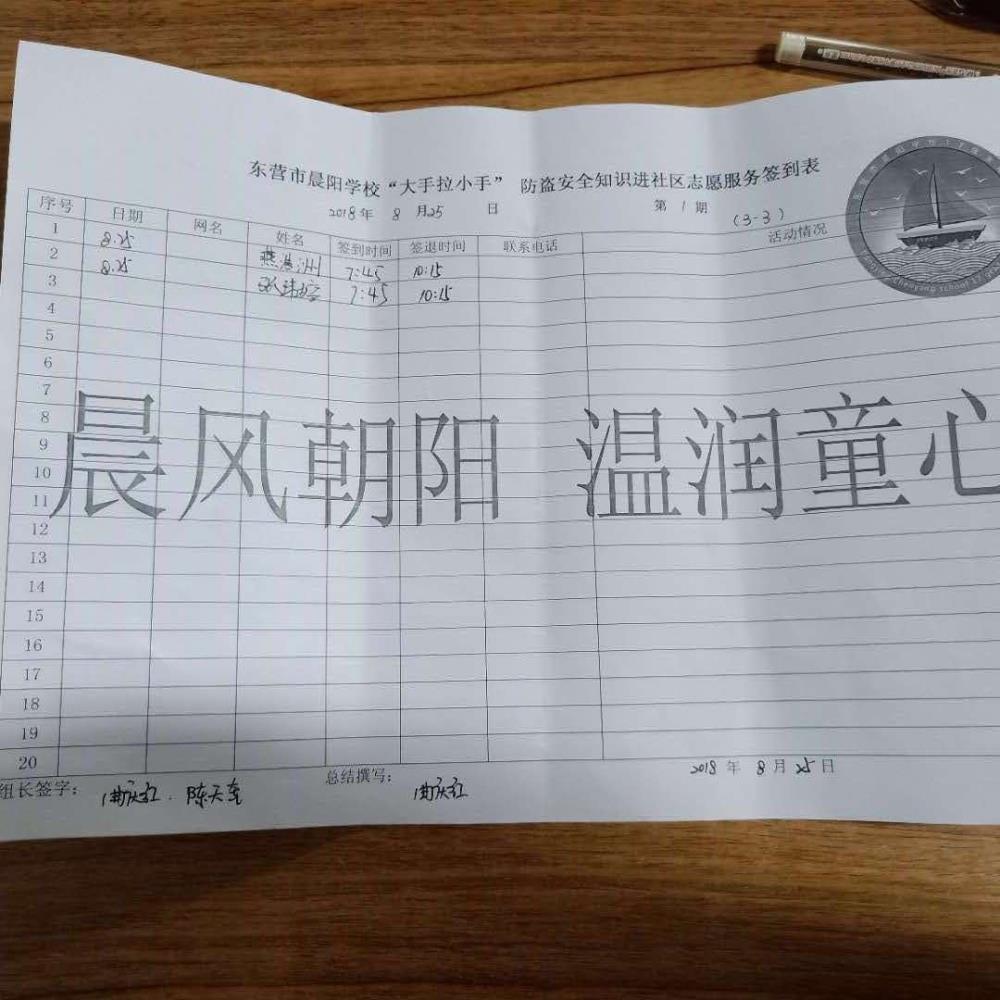 东营市晨阳学校“大手拉小手” 防盗安全知识进社区志愿服务签到表
2018年 8月25日 第1期 (3-3)
序号 日期 网名 姓名 签到时间 签退时间 联系电话 活动情况
1 8.25 7:45 10:15
2 8.25 7:45 10:15
3
4
5
6
7
8
9
10
11
12
13
14
15
16
17
18
19
20
晨风朝阳 温润童心
组长签字: 曲庆红. 陈天奎 总结撰写: 曲庆红 2018年8月25日